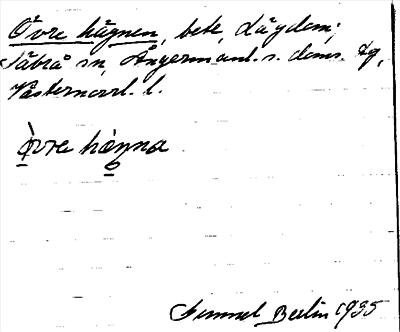 Övre hägnen, bete, Lägdom;
Säbrå sn, Ångermanl. s. doms. dg,
Västernorrl. l.
òvre hæ̀nna
Gunnel Berlin 1935